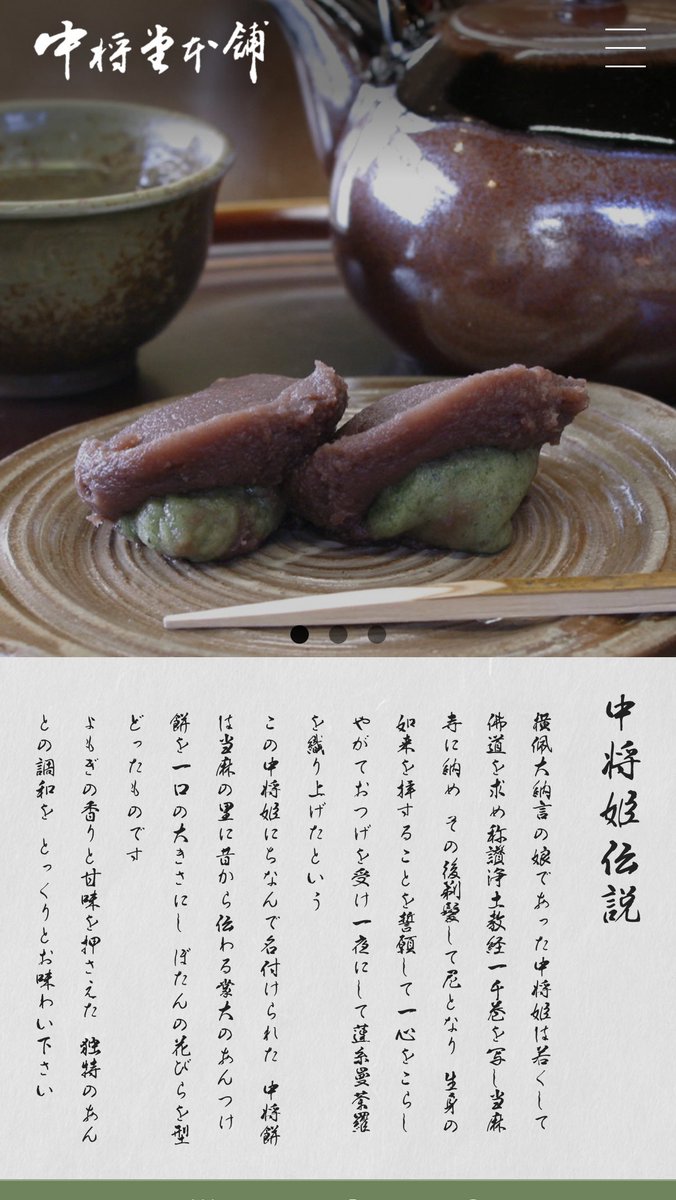 中将堂本舗
中将姫伝説
横佩大納言の娘であった中将姫は若くして
佛道を求め称讃浄土教経一千巻を写し当麻
寺に納め その後剃髪して尼となり 生身の
如来を拝することを誓願して一心をこらし
やがておつげを受け一夜にして蓮糸曼荼羅
を織り上げたという
この中将姫にちなんで名付けられた 中将餅
は当麻の里に昔から伝わる業大のあんつけ
餅を一口の大きさにし ぼたんの花びらを型
どったものです
よもぎの香りと甘味を押さえた 独特のあん
との調和を とっくりとお味わい下さい